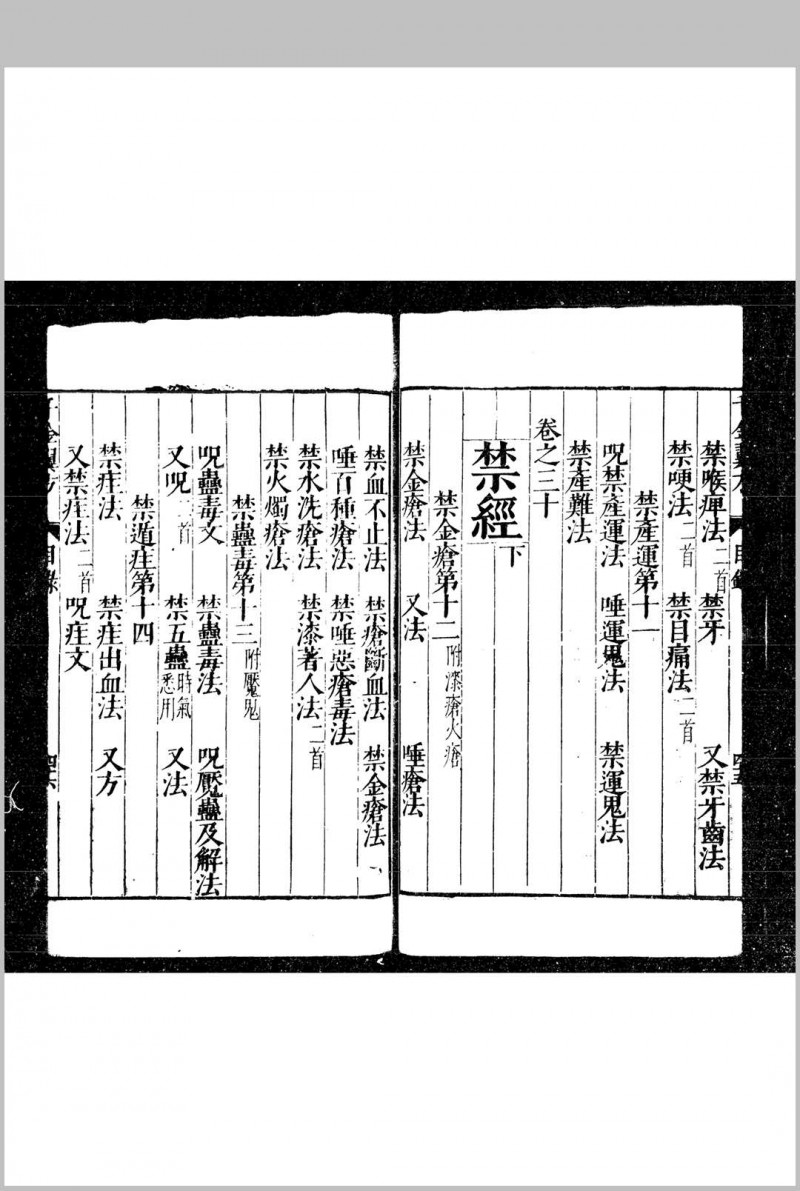 禁喉痺法二首 禁牙 又禁牙齒法
禁哽法二首 禁目痛法二首
禁產運第十一
呪禁產運法 唾運鬼法 禁運鬼法
禁產難法
卷之三十
禁經下
禁金瘡第十二附漆瘡火瘡
禁金瘡法 又法 唾瘡法
禁血不止法 禁瘡斷血法 禁金瘡法
唾百種瘡法 禁唾惡瘡毒法
禁水洗瘡法 禁漆著人法二首
禁火燭瘡法
禁蠱毒第十三附魘鬼
呪蠱毒文 禁蠱毒法 呪魘蠱及解法
又呪一首 禁五蠱時氣悉用 又法
禁遁疰第十四
禁疰法 禁疰出血法 又方
又禁疰法二首 呪疰文
目錄